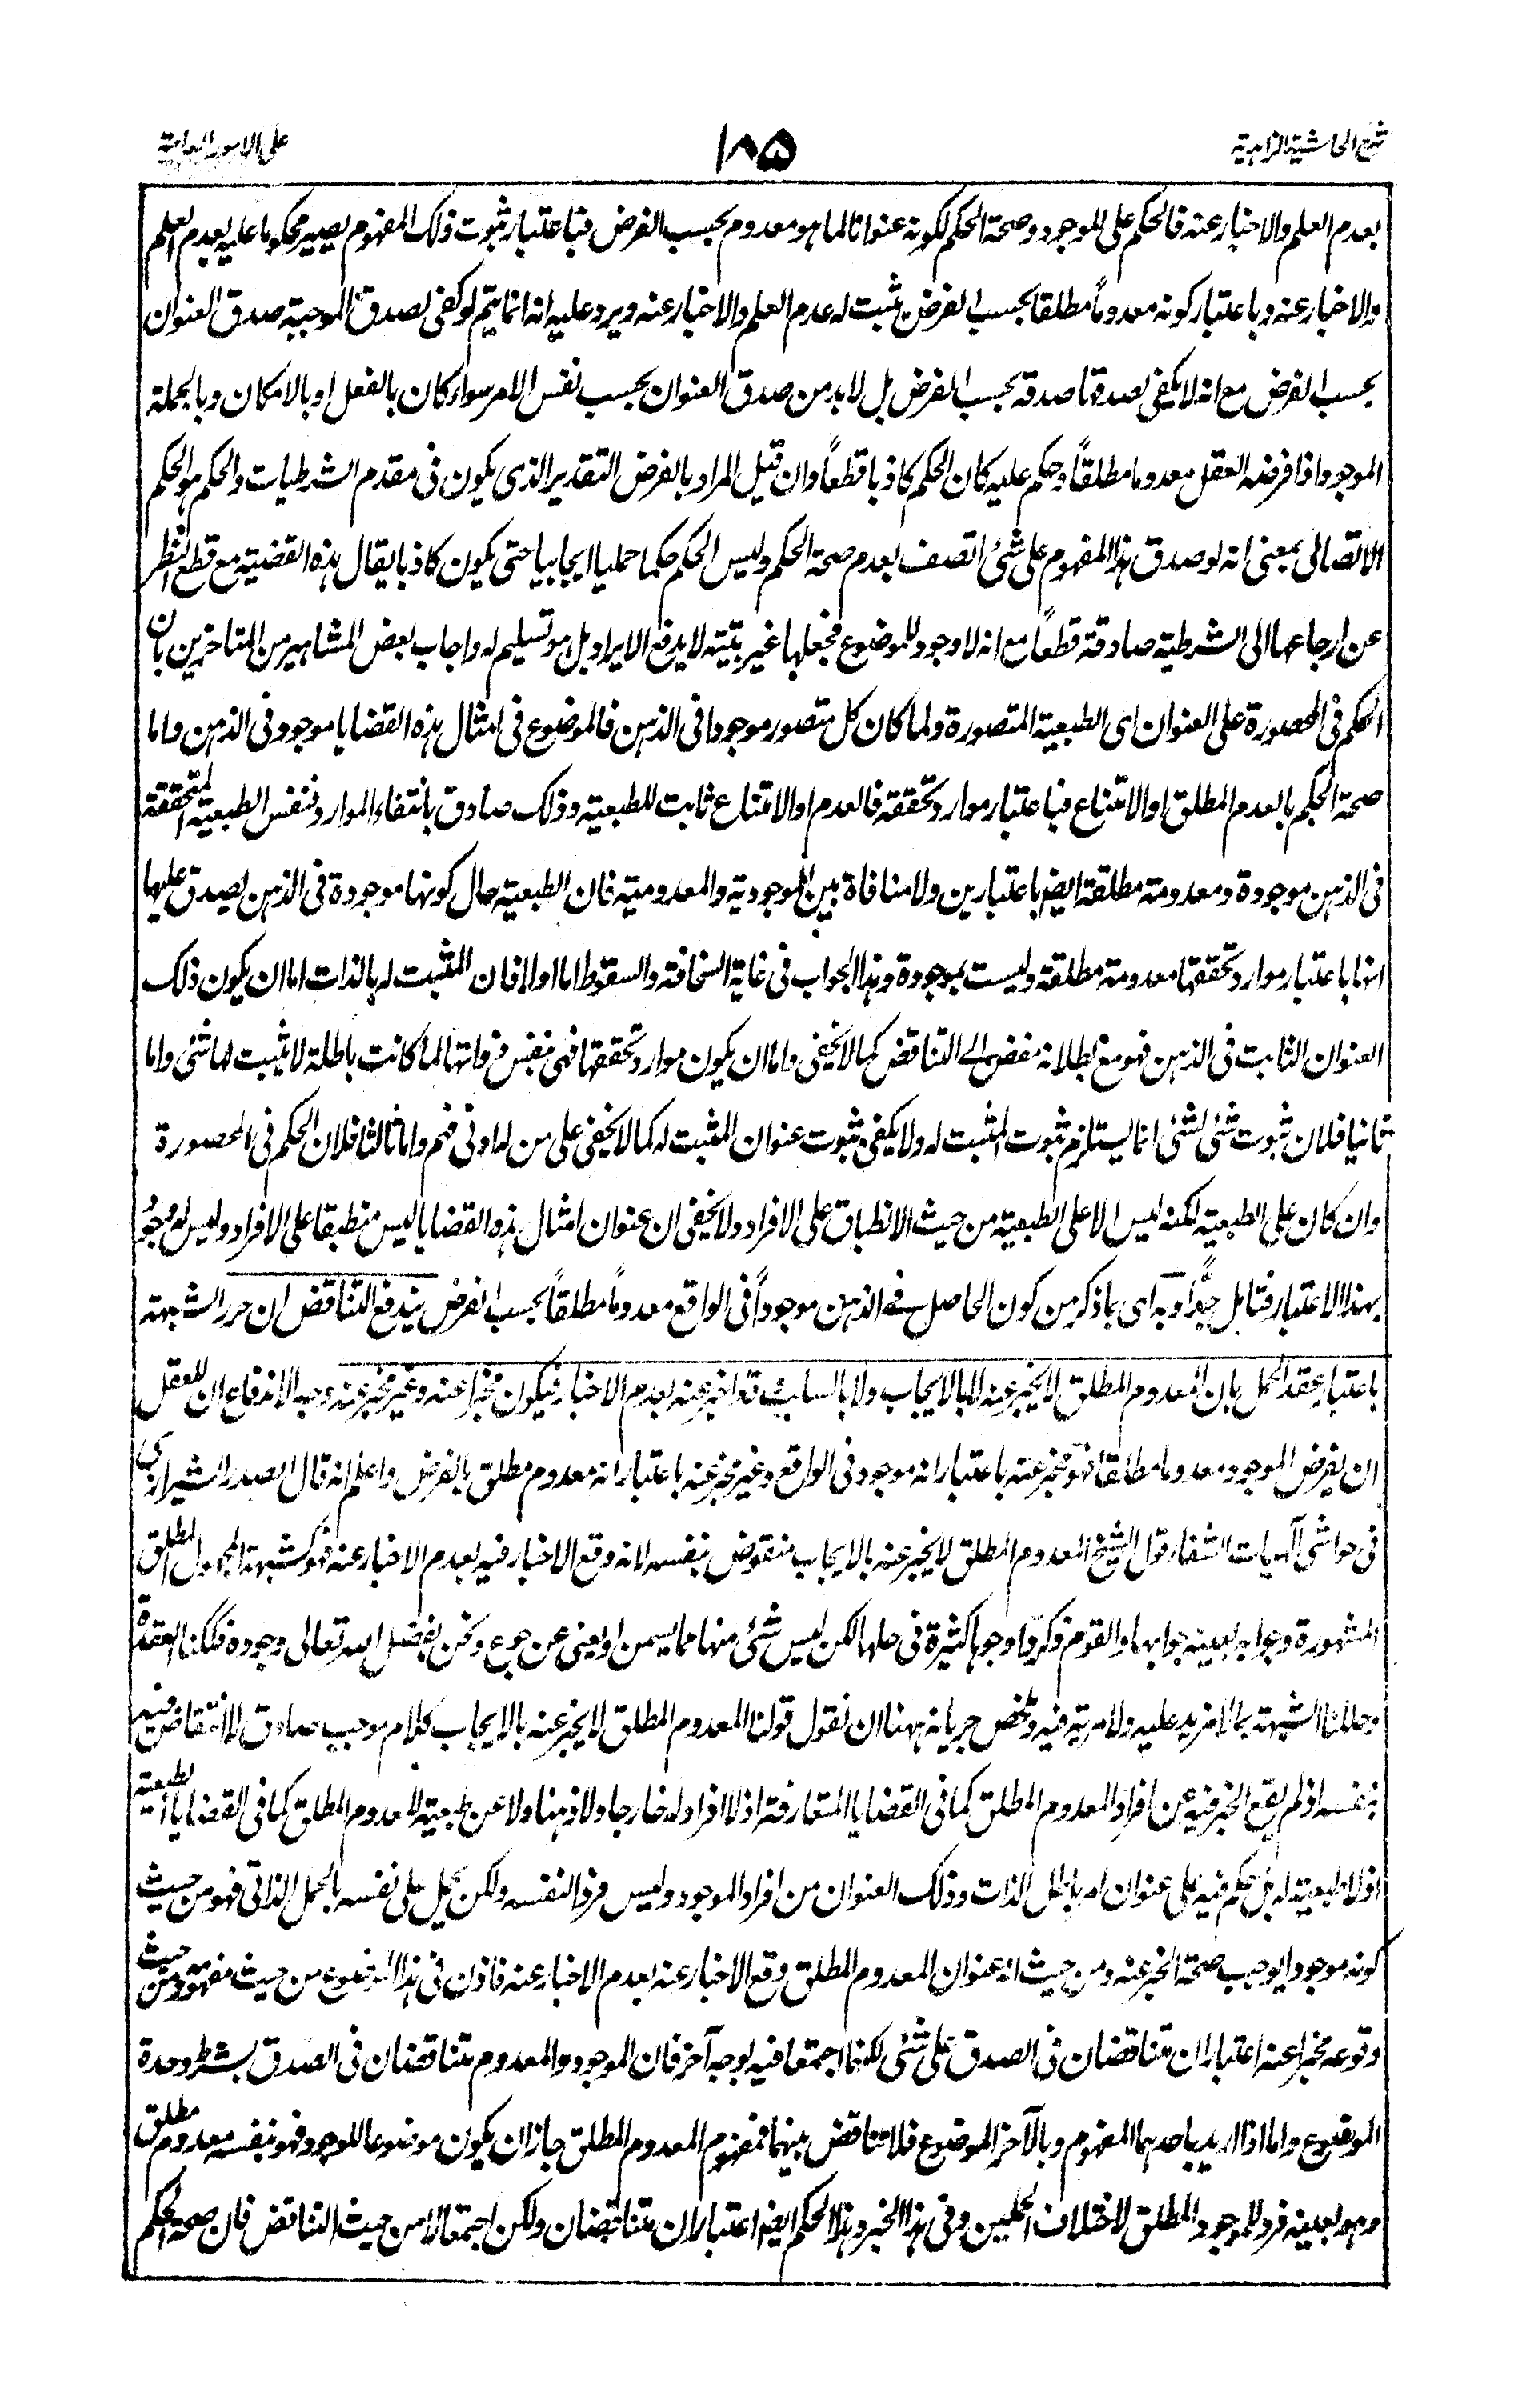 شرح الحاشية الزاهدية
١٨٥
على الامور العامة
بعدم العلم والاخبار عنه فالحكم على الموجود وصحة الحكم لكونه عنوانا لما هو معدوم بحسب الفرض فباعتبار ثبوت ذلك المفهوم يصير محكوما عليه بعدم العلم
والاخبار عنه وباعتبار كونه معدوماً مطلقا بحسب الفرض يثبت له عدم العلم والاخبار عنه ويرد عليه انه انما يتم لو كفى لصدق الموجبة صدق العنوان
بحسب الفرض مع انه لا يكفى لصدقها صدقه بحسب الفرض بل لابد من صدق العنوان بحسب نفس الامر سواء كان بالفعل او بالامكان وبالجملة
الموجود اذا فرضه العقل معدوما مطلقاً وحكم عليه كان الحكم كاذبا قطعاً وان قيل المراد بالفرض التقدير الذى يكون فى مقدم الشرطيات والحكم هو الحكم
الاتصالى بمعنى انه لو صدق هذا المفهوم على شئ اتصف بعدم صحة الحكم وليس الحكم حكما حمليا ايجابيا حتى يكون كاذبا يقال هذه القضية مع قطع النظر
عن ارجاعها الى الشرطية صادقة قطعاً مع انه لا وجود للموضوع فجعلها غير بتية لا يدفع الايراد بل هو تسليم له واجاب بعض المشاهير من المتاخرين بان
الحكم فى المحصورة على العنوان اى الطبعية المتصورة ولما كان كل متصور موجودا فى الذهن فالموضوع فى امثال هذه القضايا موجود فى الذهن واما
صحة الحكم بالعدم المطلق او الامتناع فباعتبار موارد تحققه فالعدم او الامتناع ثابت للطبعية وذلك صادق بانتفاء الموارد فنفس الطبعية المتحققة
فى الذهن موجودة ومعدومة مطلقة ايضا باعتبارين ولا منافاة بين الموجودية والمعدومية فان الطبعية حال كونها موجودة فى الذهن يصدق عليها
انها باعتبار موارد تحققها معدومة مطلقة وليست بموجودة وهذا الجواب فى غاية السخافة والسقوط اما اولا فان المثبت له بالذات اما ان يكون ذلك
العنوان الثابت فى الذهن فهو مع بطلانه مفض الى التناقض كما لا يخفى واما ان يكون موارد تحققها فهى بنفس ذواتها لما كانت باطلة لا يثبت لها شئ واما
ثانيا فلان ثبوت شئ لشئ انما يستلزم ثبوت المثبت له ولا يكفى ثبوت عنوان المثبت له كما لا يخفى على من له ادنى فهم واما ثالثا فلان الحكم فى المحصورة
وان كان على الطبعية لكنه ليس الا على الطبعية من حيث الانطباق على الافراد ولا يخفى ان عنوان امثال هذه القضايا ليس منطبقا على الافراد وليس له وجود
بهذا الاعتبار فتامل جدًّا وبه اى بما ذكر من كون الحاصل فى الذهن موجوداً فى الواقع معدوماً مطلقاً بحسب الفرض يندفع التناقض ان حرر الشبهة
باعتبار عقد الحمل بان المعدوم المطلق لا يخبر عنه لا بالايجاب ولا بالسلب فقد اخبر عنه بعدم الاخبار فيكون مخبرا عنه وغير مخبر عنه وجه الاندفاع ان للعقل
ان يفرض الموجود معدوما مطلقا فهو مخبر عنه باعتبار انه موجود فى الواقع وغير مخبر عنه باعتبار انه معدوم مطلق بالفرض واعلم انه قال الصدر الشيرازى
فى حواشى آلهيات الشفاء قول الشيخ المعدوم المطلق لا يخبر عنه بالايجاب منقوض بنفسه لانه وقع الاخبار فيه بعدم الاخبار عنه فهو كشبهة المجهول المطلق
المشهورة وجوابه بعينه جوابها والقوم ذكروا وجوها كثيرة فى حلها لكن ليس شئ منها مما يسمن او يغنى عن جوع ونحن بفضل الله تعالى وجوده فككنا العقدة
وحللنا الشبهة بما لا مزيد عليه ولا مرية فيه وملخص جريانه ههنا ان نقول قولنا المعدوم المطلق لا يخبر عنه بالايجاب كلام موجب صادق لا انتقاض فيه
بنفسه اذ لم يقع الخبر فيه عن افراد المعدوم المطلق كما فى القضايا المتعارفة اذ لا افراد له خارجا ولا ذهنا ولا عن طبعية المعدوم المطلق كما فى القضايا الطبعية
اذ لا طبعية له بل حكم فيه على عنوان امر باطل الذات وذلك العنوان من افراد الموجود وليس فردا لنفسه ولكن يحمل على نفسه بالحمل الذاتى فهو من حيث
كونه موجودا يوجب صحة الخبر عنه ومن حيث انه عنوان المعدوم المطلق وقع الاخبار عنه بعدم الاخبار عنه فاذن فى هذا الموضوع من حيث مفهومه ومن حيث
وقوعه مخبرا عنه اعتباران متناقضان فى الصدق على شئ لكنهما اجتمعا فيه بوجه آخر فان الموجود والمعدوم متناقضان فى الصدق بشرط وحدة
الموضوع واما اذا اريد باحدهما المفهوم وبالآخر الموضوع فلا تناقض بينهما فمفهوم المعدوم المطلق جاز ان يكون موضوعا للوجود فهو بنفسه معدوم مطلق
وهو بعينه فرد للموجود المطلق لاختلاف الحملين وفى هذا الخبر وهذا الحكم ايضا اعتباران متناقضان ولكن اجتمعا لا من حيث التناقض فان صحة الحكم